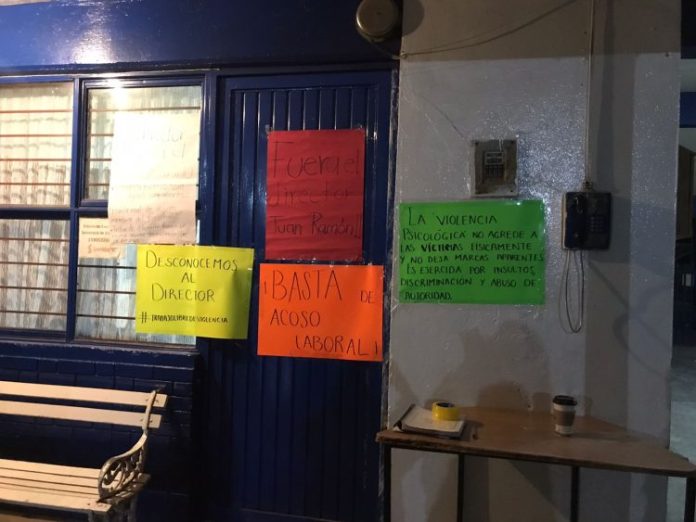 Fuera el
director
Juan Ramón!!
DESCONOCEMOS
AL
DIRECTOR
#TRABAJOLIBREDEVIOLENCIA
¡BASTA DE
ACOSO
LABORAL!
LA VIOLENCIA
PSICOLÓGICA NO AGREDE A
LAS VÍCTIMAS FÍSICAMENTE
Y NO DEJA MARCAS APARENTES
ES EJERCIDA POR INSULTOS,
DISCRIMINACIÓN Y ABUSO DE
AUTORIDAD.